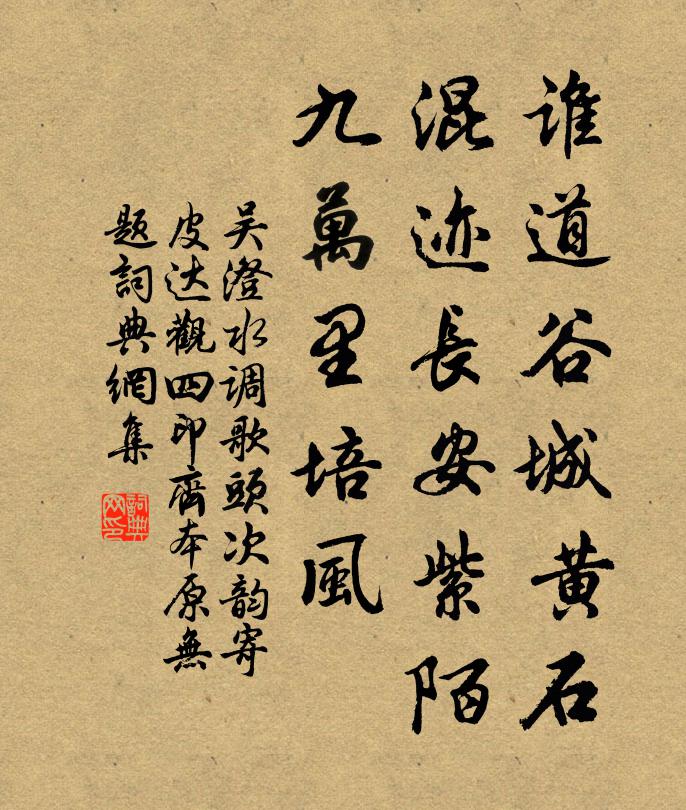 谁道谷城黄石
混迹長安紫陌
九萬里培風
吴澄水调歌頭次韵寄
皮达觀四印齋本原無
题詞典網集
詞典网印